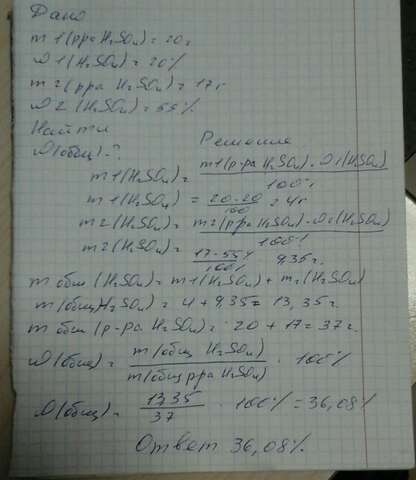 Дано
m 1 (р-ра H₂SO₄) = 20 г
ω 1 (H₂SO₄) = 20 %
m 2 (р-ра H₂SO₄) = 17 г
ω 2 (H₂SO₄) = 55 %.
Найти
ω (общ) - ?
Решение
m 1 (H₂SO₄) = m1 (р-ра H₂SO₄) · ω1 (H₂SO₄) / 100%
m 1 (H₂SO₄) = 20 · 20 / 100 = 4 г
m 2 (H₂SO₄) = m2 (р-ра H₂SO₄) · ω2 (H₂SO₄) / 100%
m 2 (H₂SO₄) = 17 · 55% / 100% 9,35 г.
m общ (H₂SO₄) = m1 (H₂SO₄) + m2 (H₂SO₄)
m (общ H₂SO₄) = 4 + 9,35 = 13,35 г.
m общ (р-ра H₂SO₄) = 20 + 17 = 37 г.
ω (общ) = m (общ H₂SO₄) / m (общ р-ра H₂SO₄) · 100 %
ω (общ) = 13,35 / 37 · 100 % = 36,08 %
Ответ 36,08 %.